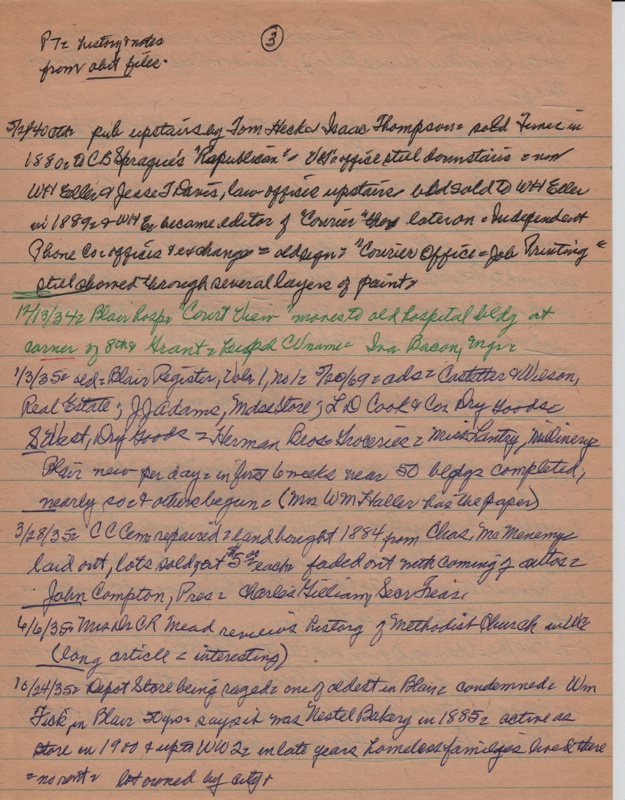 PT= history & notes
from obit files.
3
5/2/40 pub upstairs by Tom Heck & Isaac Thompson = sold Times in
1880s to CB Sprague's "Republican" office still downstairs = now
WH Eller & Jesse T Davis, law offices upstairs bld sold to WH Eller
in 1889 = & WH E became editor of "Courier" later on = Independent
Phone Co = offices & exchange = old sign = "Courier Office = Job Printing"
still showed through several layers of paint =
12/13/34 = Blair Hosp = "Court View" moves to old hospital bldg at
corner of 8th & Grant = keeps CV name = Ina Bacon, Mgr =
1/3/35 = Blair Register, Vol 1, No 1 = ads = Castetter & Wilson,
Real Estate; JJ Adams, Mdse Store; L D Cook & Co = Dry Goods =
West, Dry Goods = Herman Bros = Groceries = Millinery
Blair new per day = in first 6 weeks near 50 bldgs completed,
nearly so & others begun = (Mrs WM Haller has the paper)
3/28/35 = C C Cem repaired = land bought 1884 from Chas. McMenemy =
laid out, lots sold at $5 each = faded out with coming of autos =
John Compton, Pres = Charles Gilliam, Sec Treas.
6/6/35 = Mrs Dr CR Mead reviews history of Methodist Church
(long article = interesting)
10/24/35 = Depot Store being razed = one of oldest in Blair = condemned = Wm
Fick, in Blair 50 yrs = says it was Nestel Bakery in 1885 = active as
store in 1900 & up to WW2 = in late years homeless families lived there
= no rent = lot owned by city.